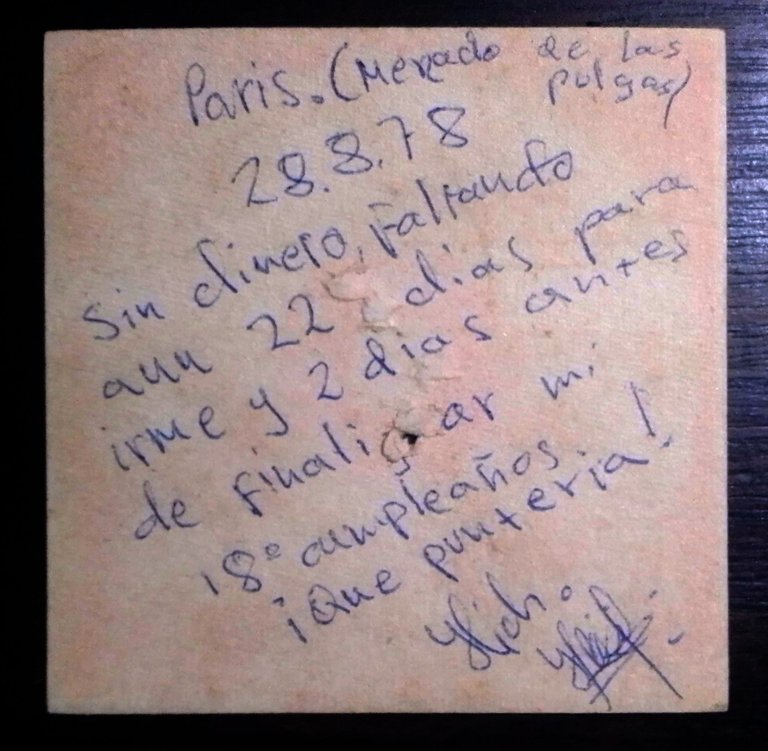 Paris. (Mercado de las
pulgas)
28.8.78
Sin dinero, Faltando
aun 22 dias para
irme y 2 dias antes
de finalizar mi
18º cumpleaños.
¡Que punteria!